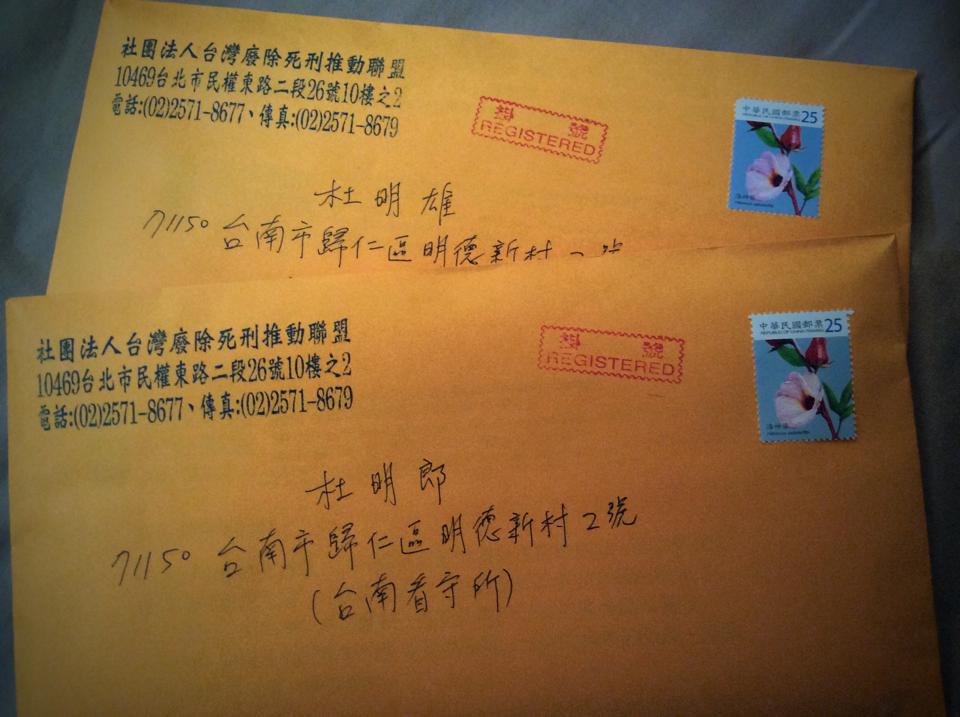 社團法人台灣廢除死刑推動聯盟
10469台北市民權東路二段26號10樓之2
電話:(02)2571-8677、傳真:(02)2571-8679
掛號
REGISTERED
中華民國郵票 25
REPUBLIC OF CHINA (TAIWAN)
洛神葵
杜明雄
71150 台南市歸仁區明德新村
社團法人台灣廢除死刑推動聯盟
10469台北市民權東路二段26號10樓之2
電話:(02)2571-8677、傳真:(02)2571-8679
掛號
REGISTERED
中華民國郵票 25
REPUBLIC OF CHINA (TAIWAN)
洛神葵
杜明郎
71150 台南市歸仁區明德新村2號
(台南看守所)